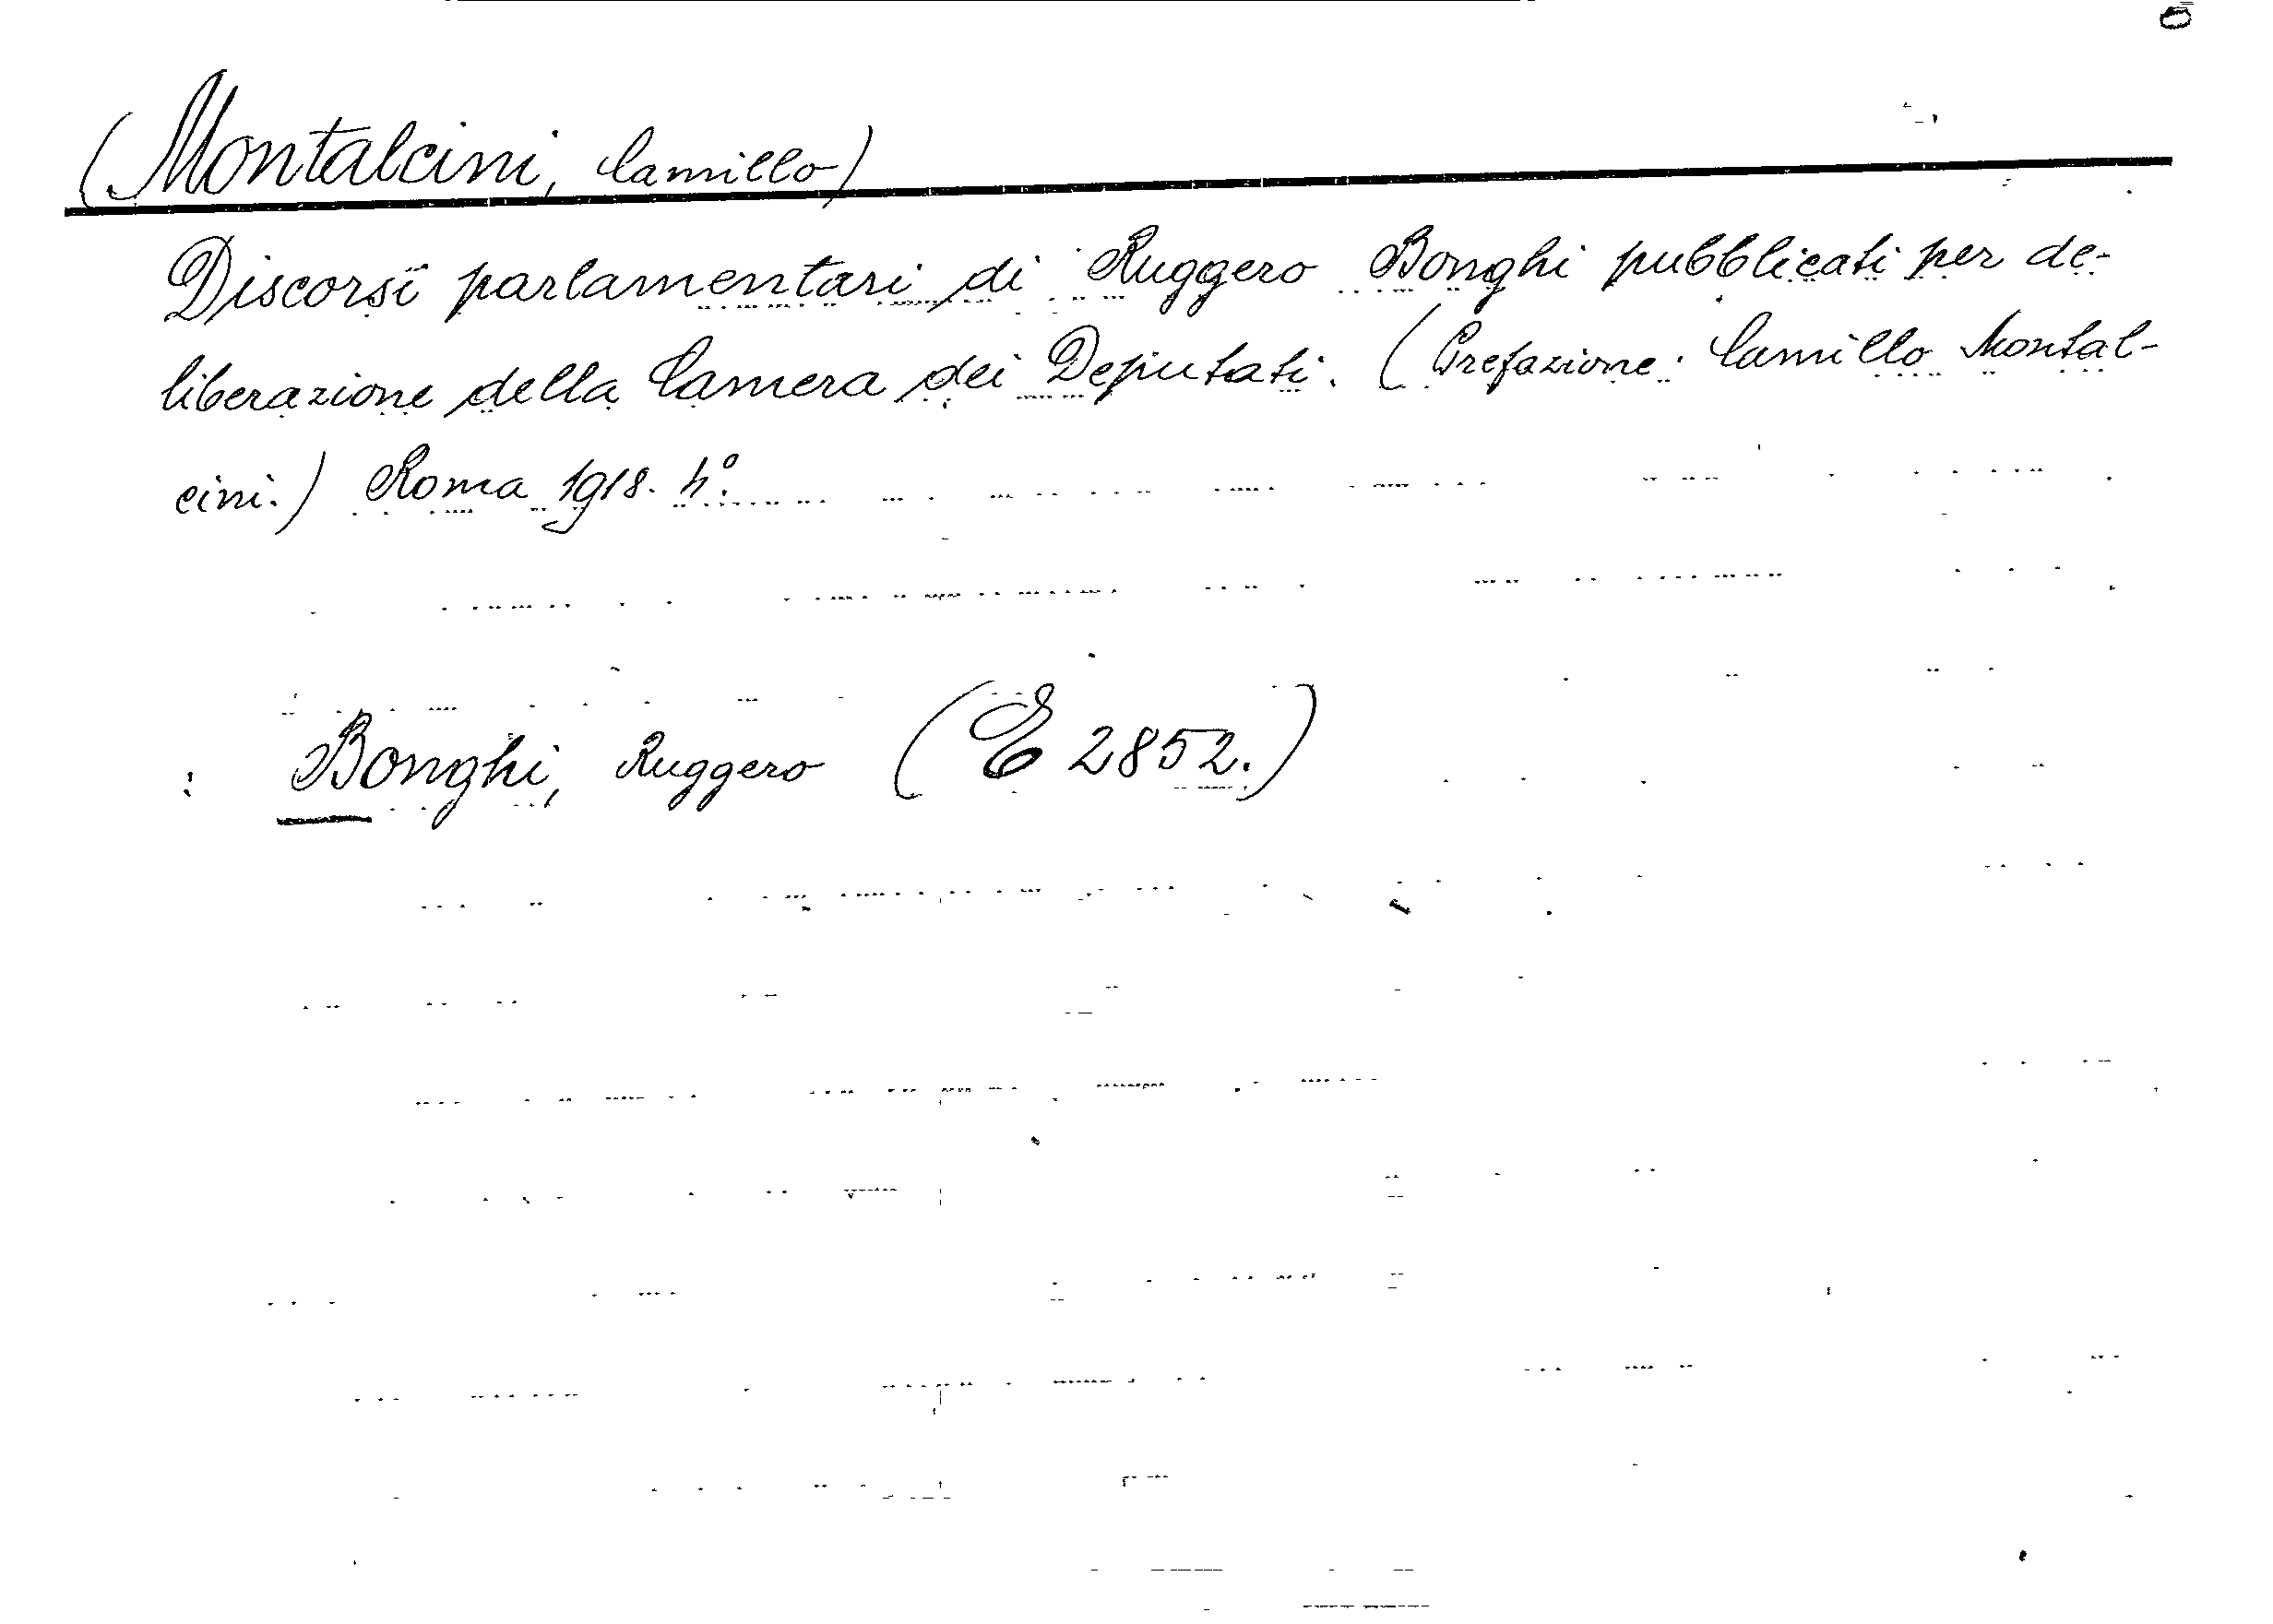 (Montalcini, Camillo)
Discorsi parlamentari di Ruggero Bonghi pubblicati per de-
liberazione della Camera dei Deputati. (Prefazione: Camillo Montal-
cini.) Roma 1918. 4°.
: Bonghi, Ruggero (E 2852.)